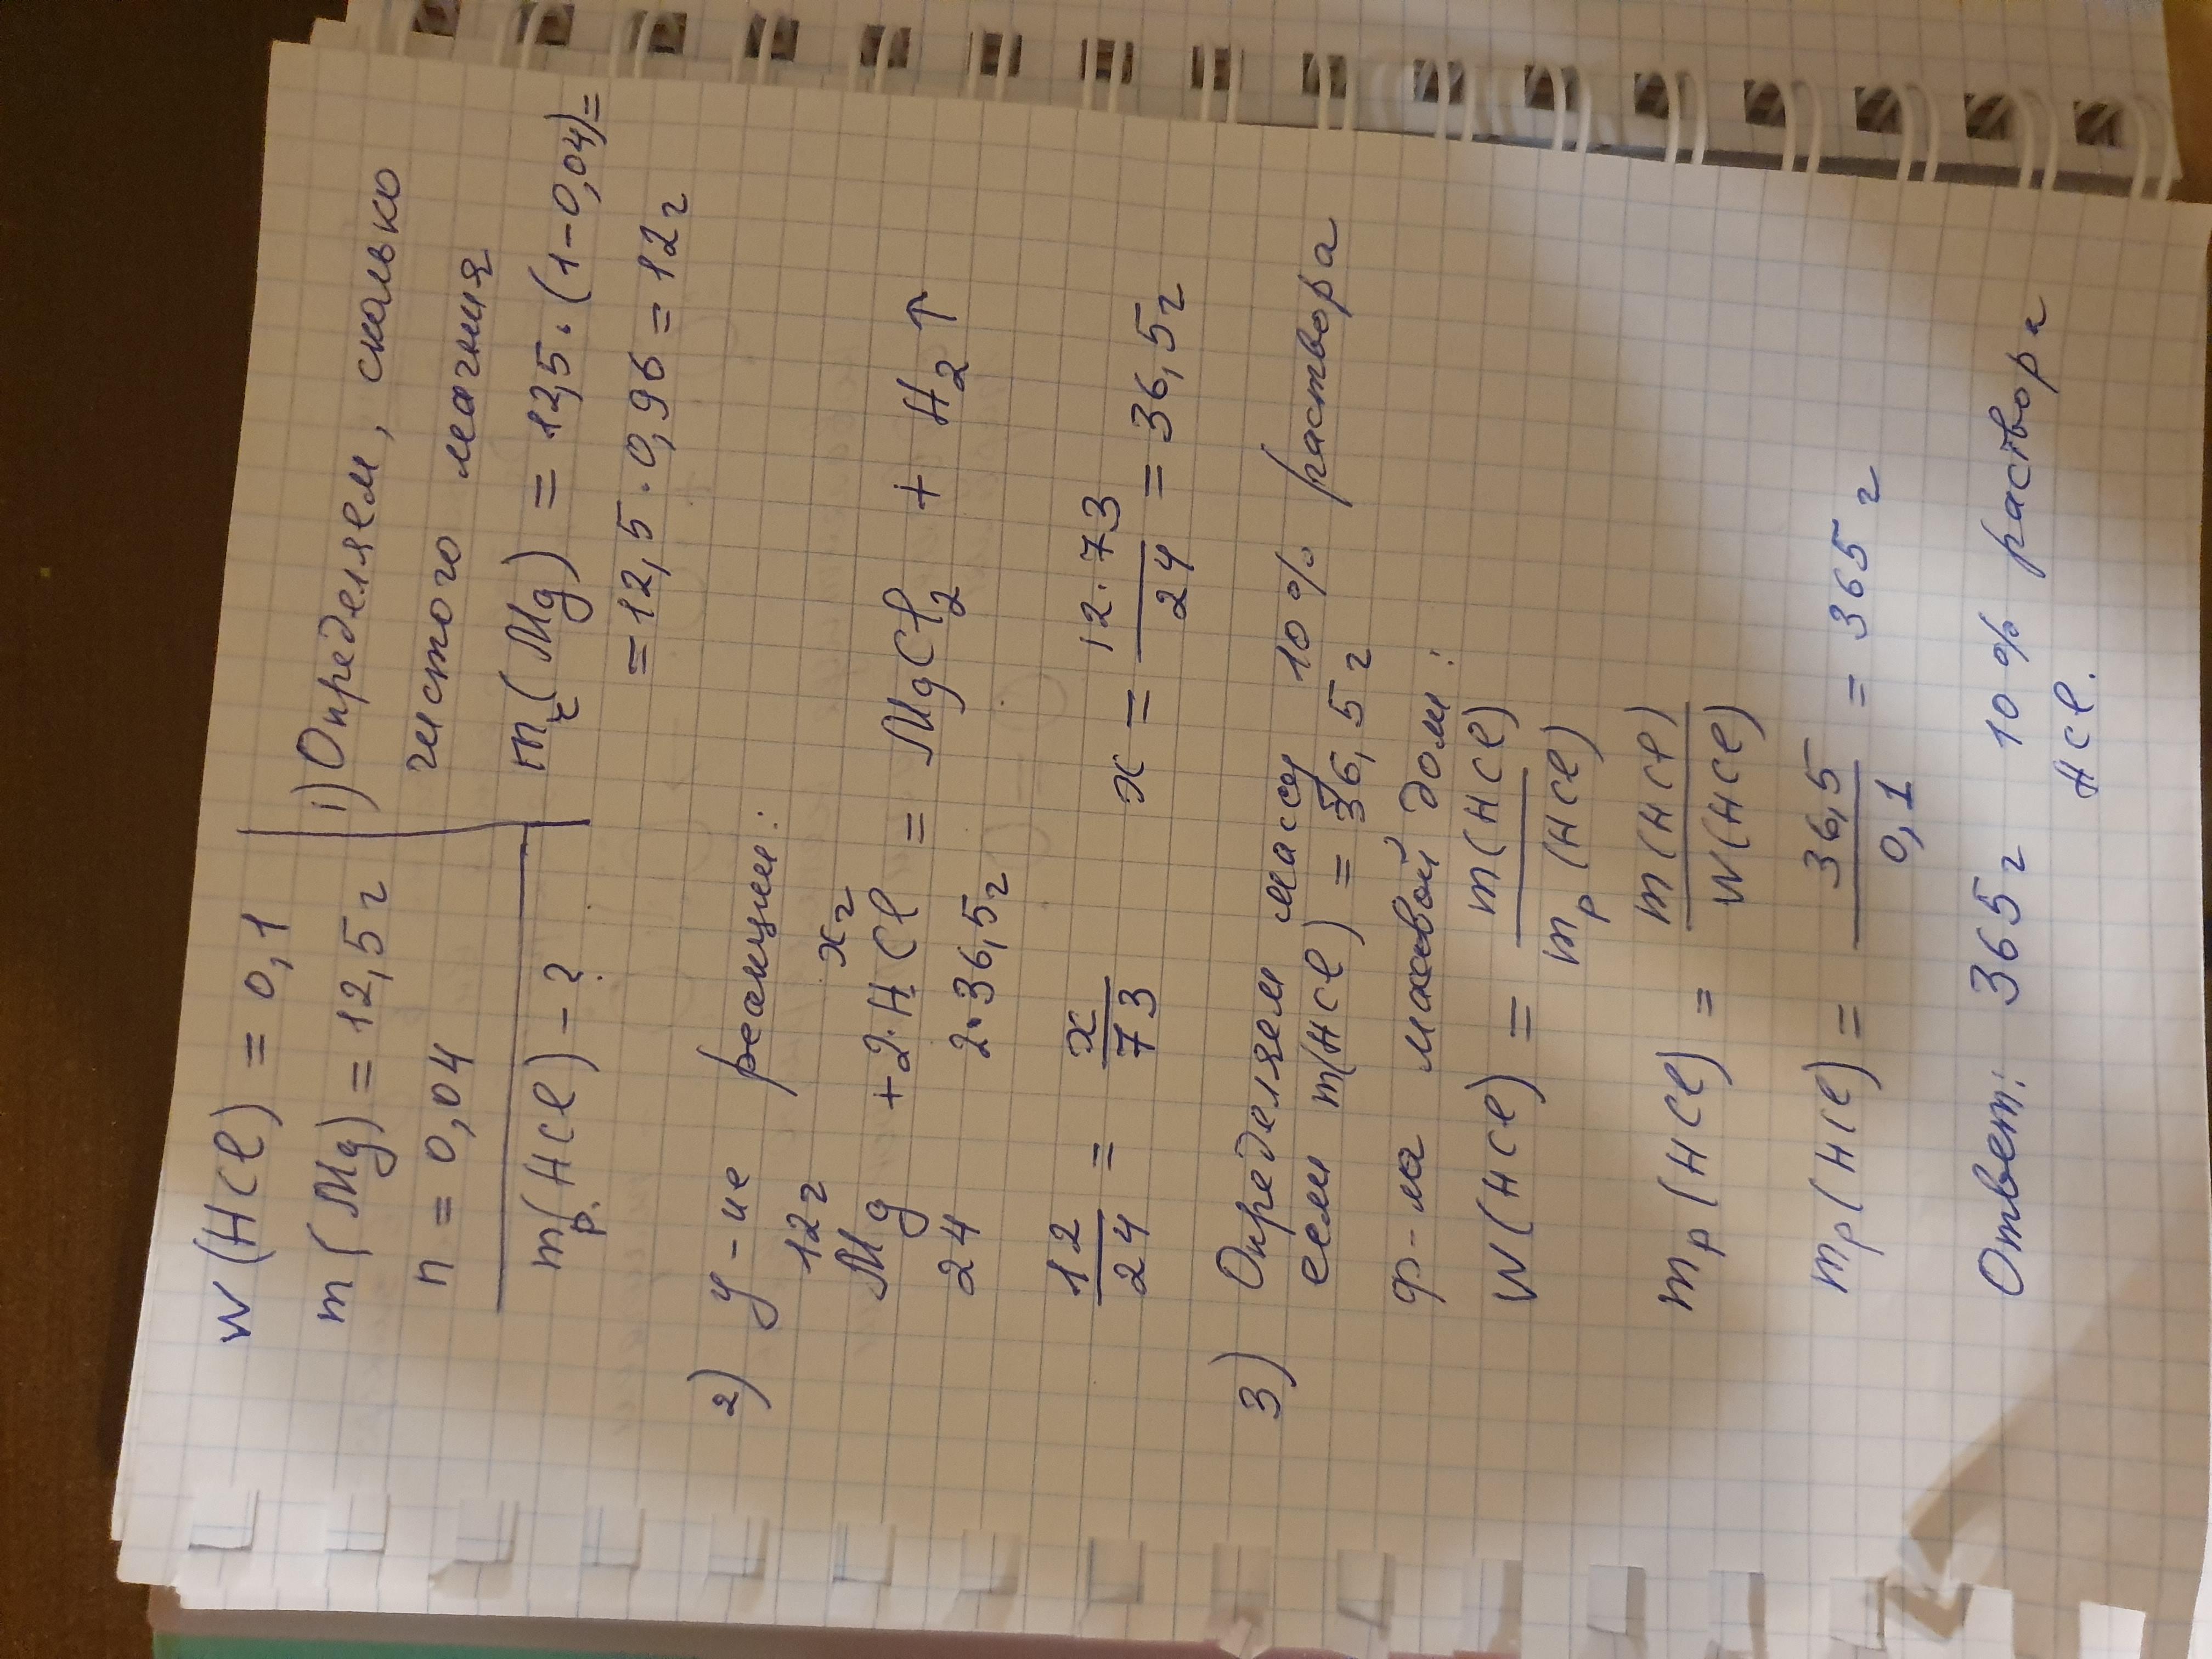 w(HCl) = 0,1
m(Mg) = 12,5 г
n = 0,04
mр.(HCl) - ?
1) Определяем, сколько
чистого магния
mч(Mg) = 12,5 · (1-0,04) =
= 12,5 · 0,96 = 12 г
2) у-ие реакции:
12 г x г
Mg + 2·HCl = MgCl2 + H2 ↑
24 2·36,5 г
12/24 = x/73 x = 12·73/24 = 36,5 г
3) Определяем массу 10% раствора
если m(HCl) = 36,5 г
ф-ла массовой доли:
W(HCl) = m(HCl)/mр(HCl)
mр(HCl) = m(HCl)/W(HCl)
mр(HCl) = 36,5/0,1 = 365 г
Ответ: 365 г 10% раствора
HCl.